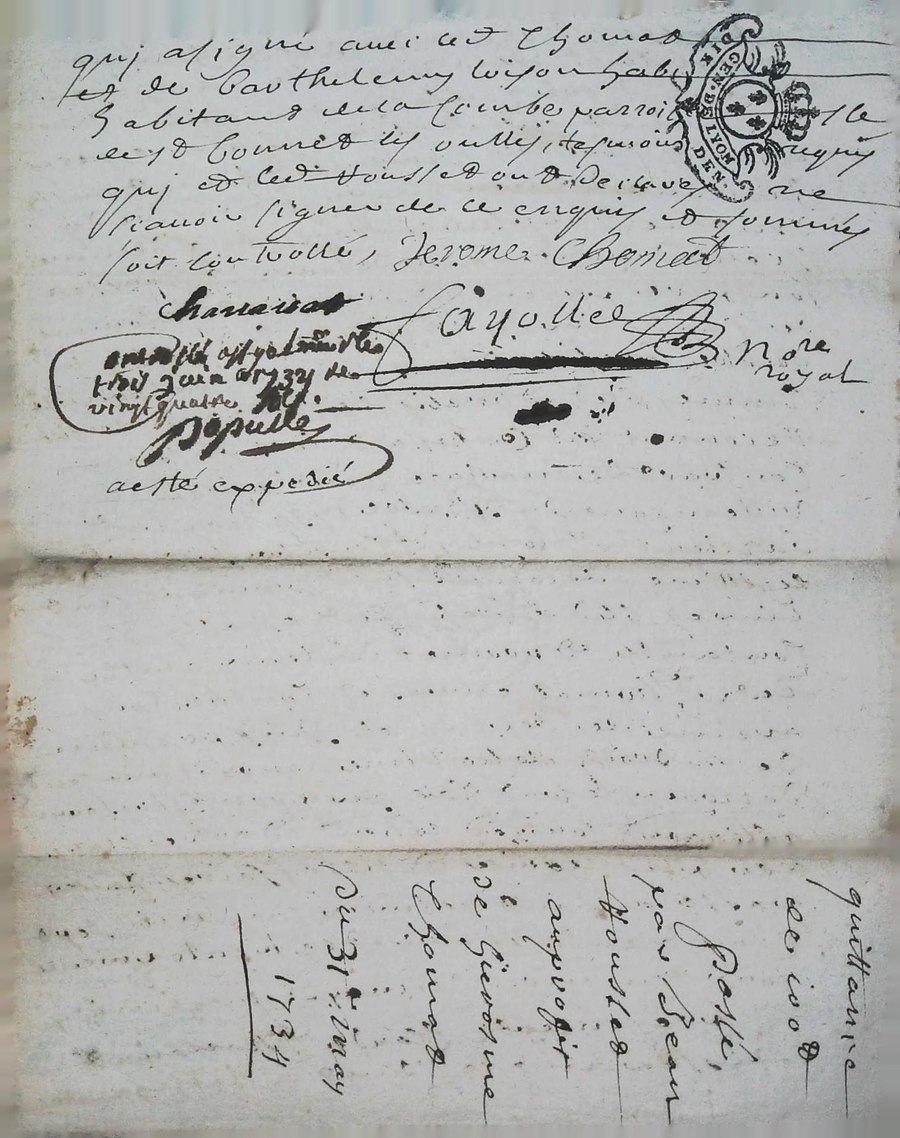 qui a signé avec led Chomat
et de barthelemy loison
habitans de la Combe parroisse
de st bonnet les oulles, tesmoins requis
qui et led Housset ont declaré ne
scavoir signer de ce enquis et sommés
soit controllé, Jerome Chomat
Fayolle
Nore
royal
trois juin 1734
vingt quatre
acsté expedié
GEN. DE LYON
quittance
de 100 ₶
passé,
par Jean
Housset
au profit
de Gierosme
Chomat
Du 31e may
1734